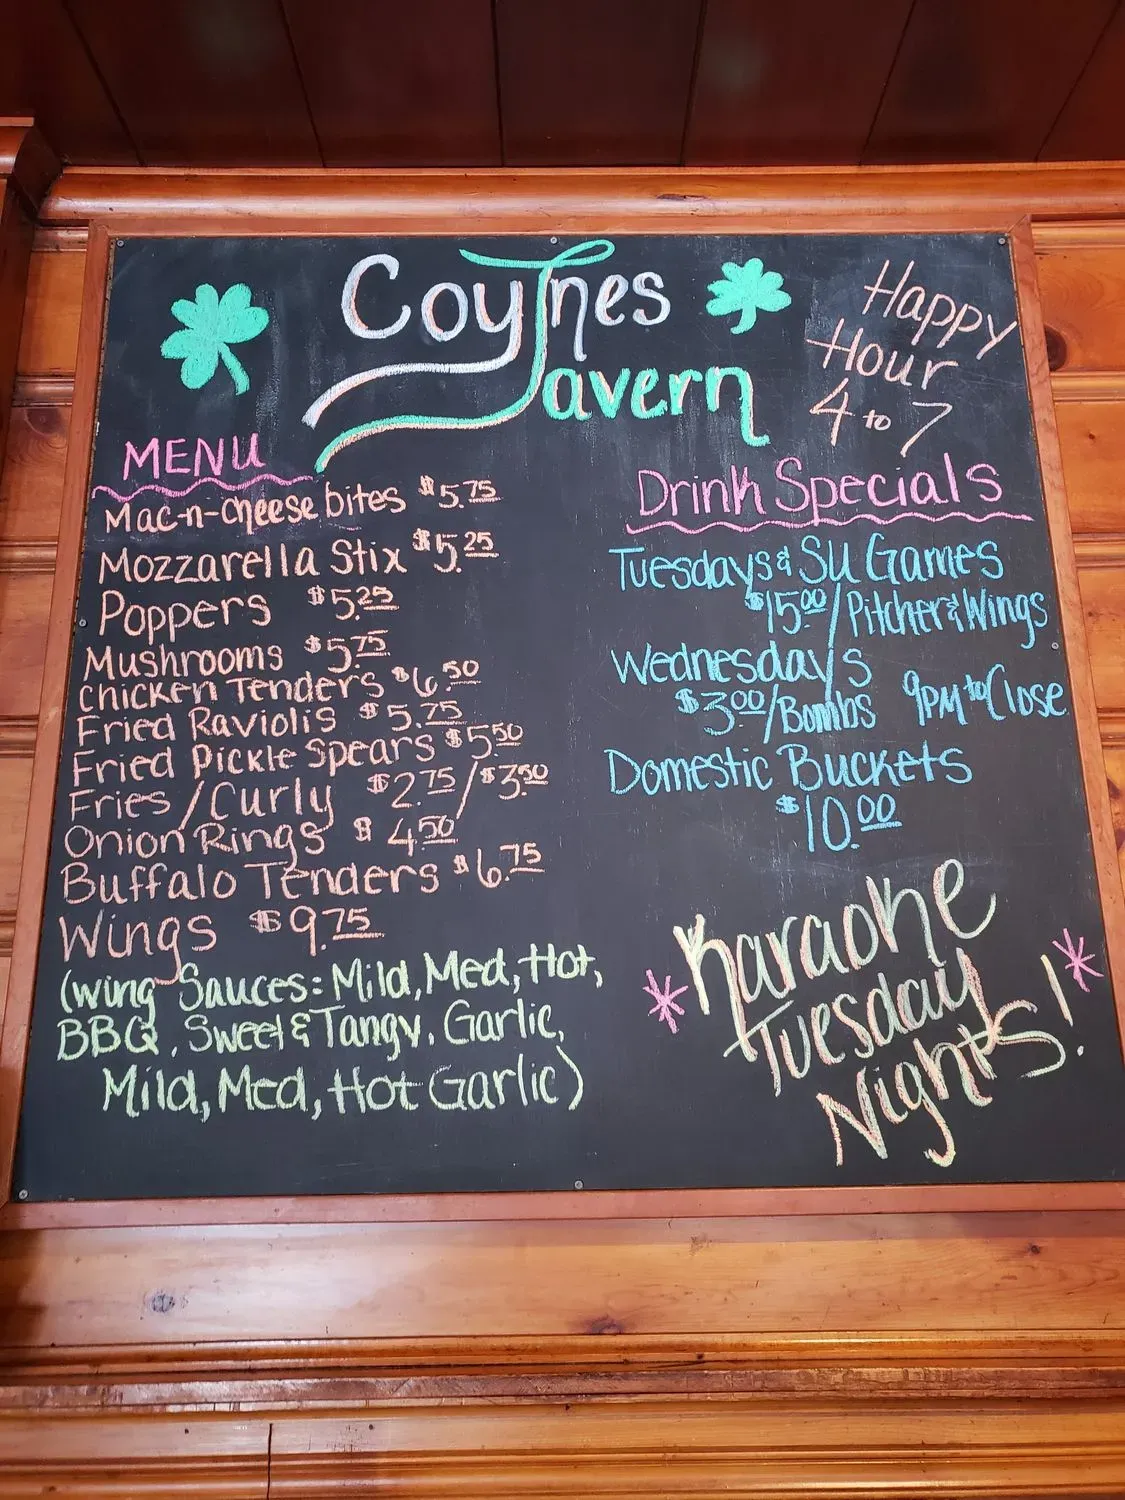 Coynes
Tavern
Happy
Hour
4 to 7
MENU
Mac-n-cheese bites $5.75
Mozzarella Stix $5.25
Poppers $5.25
Mushrooms $5.75
Chicken Tenders $6.50
Fried Raviolis $5.75
Fried Pickle Spears $5.50
Fries/Curly $2.75/$3.50
Onion Rings $4.50
Buffalo Tenders $6.75
Wings $9.75
(Wing Sauces: Mild, Med, Hot,
BBQ, Sweet & Tangy, Garlic,
Mild, Med, Hot Garlic)
Drink Specials
Tuesdays & SU Games
$15.00/Pitcher & Wings
Wednesdays
$3.00/Bombs 9pm to Close
Domestic Buckets
$10.00
*Karaoke
Tuesday
Nights!*